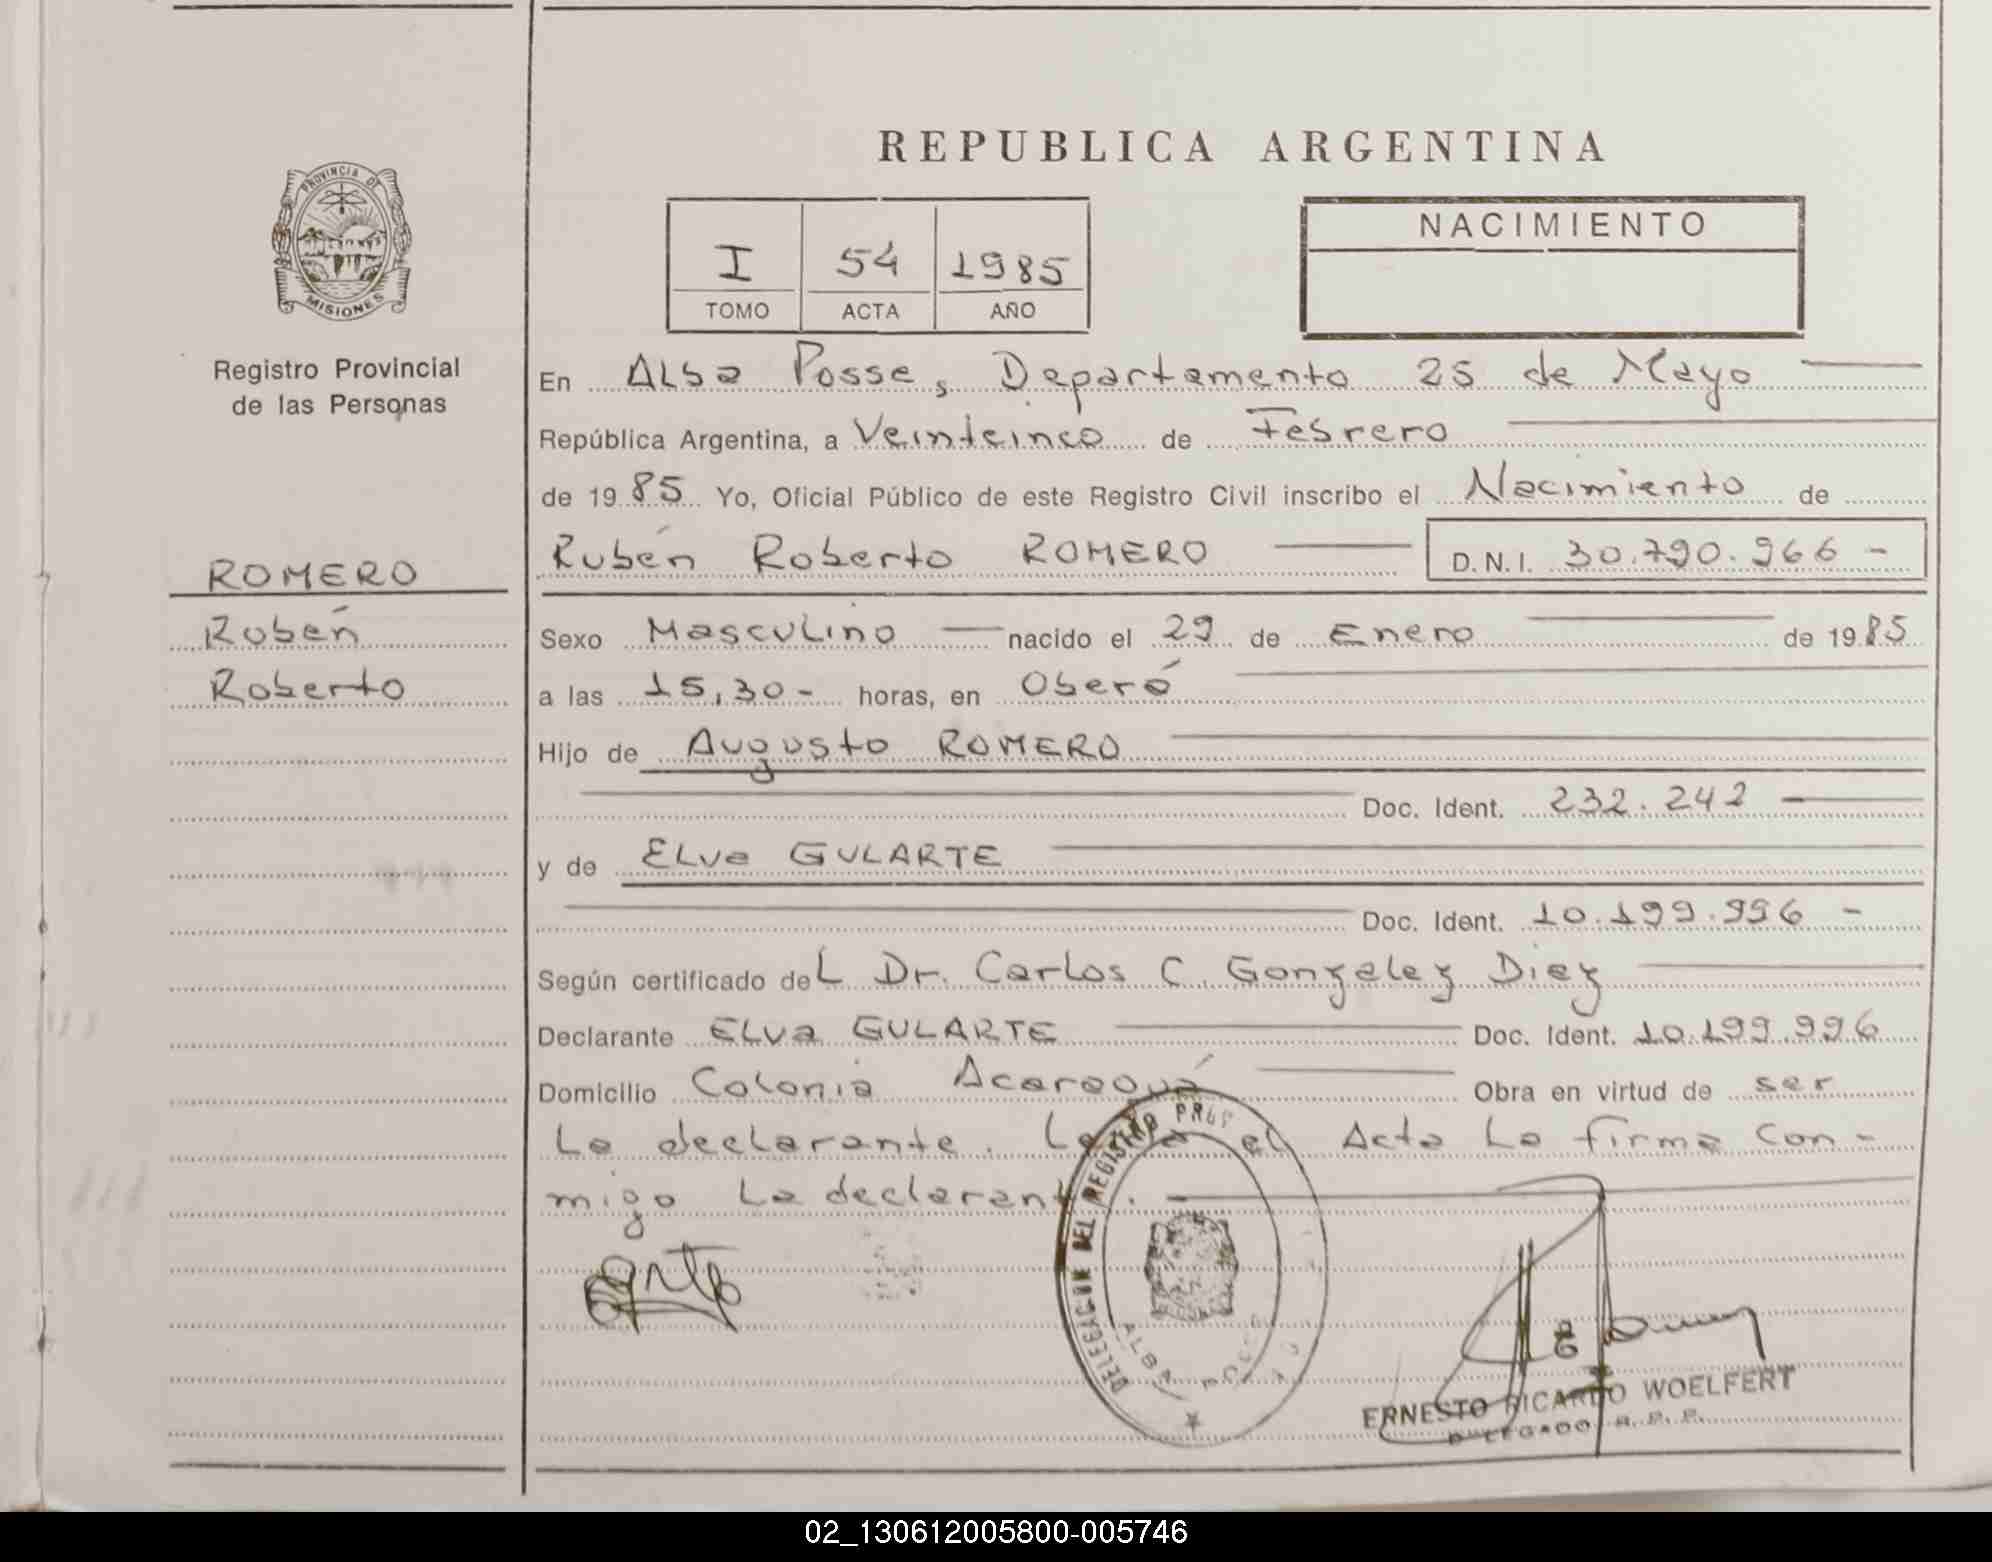 REPUBLICA ARGENTINA
PROVINCIA DE
MISIONES
Registro Provincial
de las Personas
I 54 1985
TOMO ACTA AÑO
NACIMIENTO
En Alba Posse, Departamento 25 de Mayo
República Argentina, a Veinticinco de Febrero
de 19 85 Yo, Oficial Público de este Registro Civil inscribo el Nacimiento de
Rubén Roberto ROMERO D.N.I. 30.790.966 -
ROMERO
Rubén
Roberto
Sexo Masculino nacido el 29 de Enero de 19 85
a las 15,30- horas, en Oberá
Hijo de Augusto ROMERO
Doc. Ident. 232.242
y de Elva GULARTE
Doc. Ident. 10.199.996 -
Según certificado del Dr. Carlos C. Gonzalez Diez
Declarante Elva GULARTE Doc. Ident. 10.199.996
Domicilio Colonia Acaraguá Obra en virtud de ser
La declarante. el Acta La firma con-
migo La declarante.
DELEGACION DEL REGISTRO
ALBA POSSE
ERNESTO RICARDO WOELFERT
DELEGADO R. P. P.
02_130612005800-005746